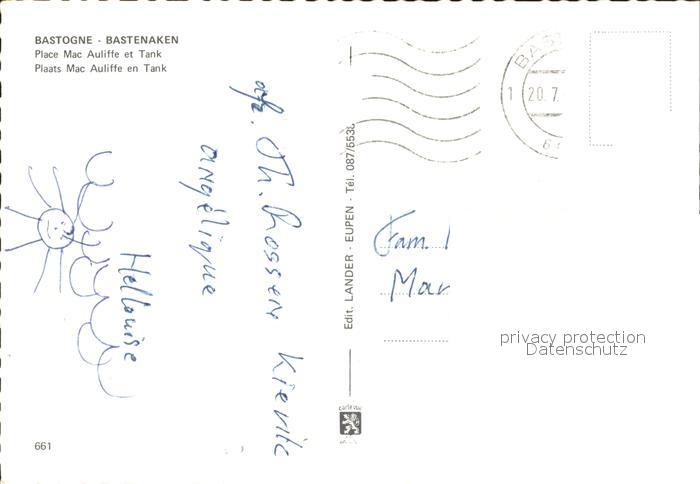 BASTOGNE - BASTENAKEN
Place Mac Auliffe et Tank
Plaats Mac Auliffe en Tank
afz. Th. Rossen Kievitz
angélique
Hellouise
Edit. LANDER - EUPEN - Tél. 087/5538
1 20.7.
Fam.
Mar
privacy protection
Datenschutz
661